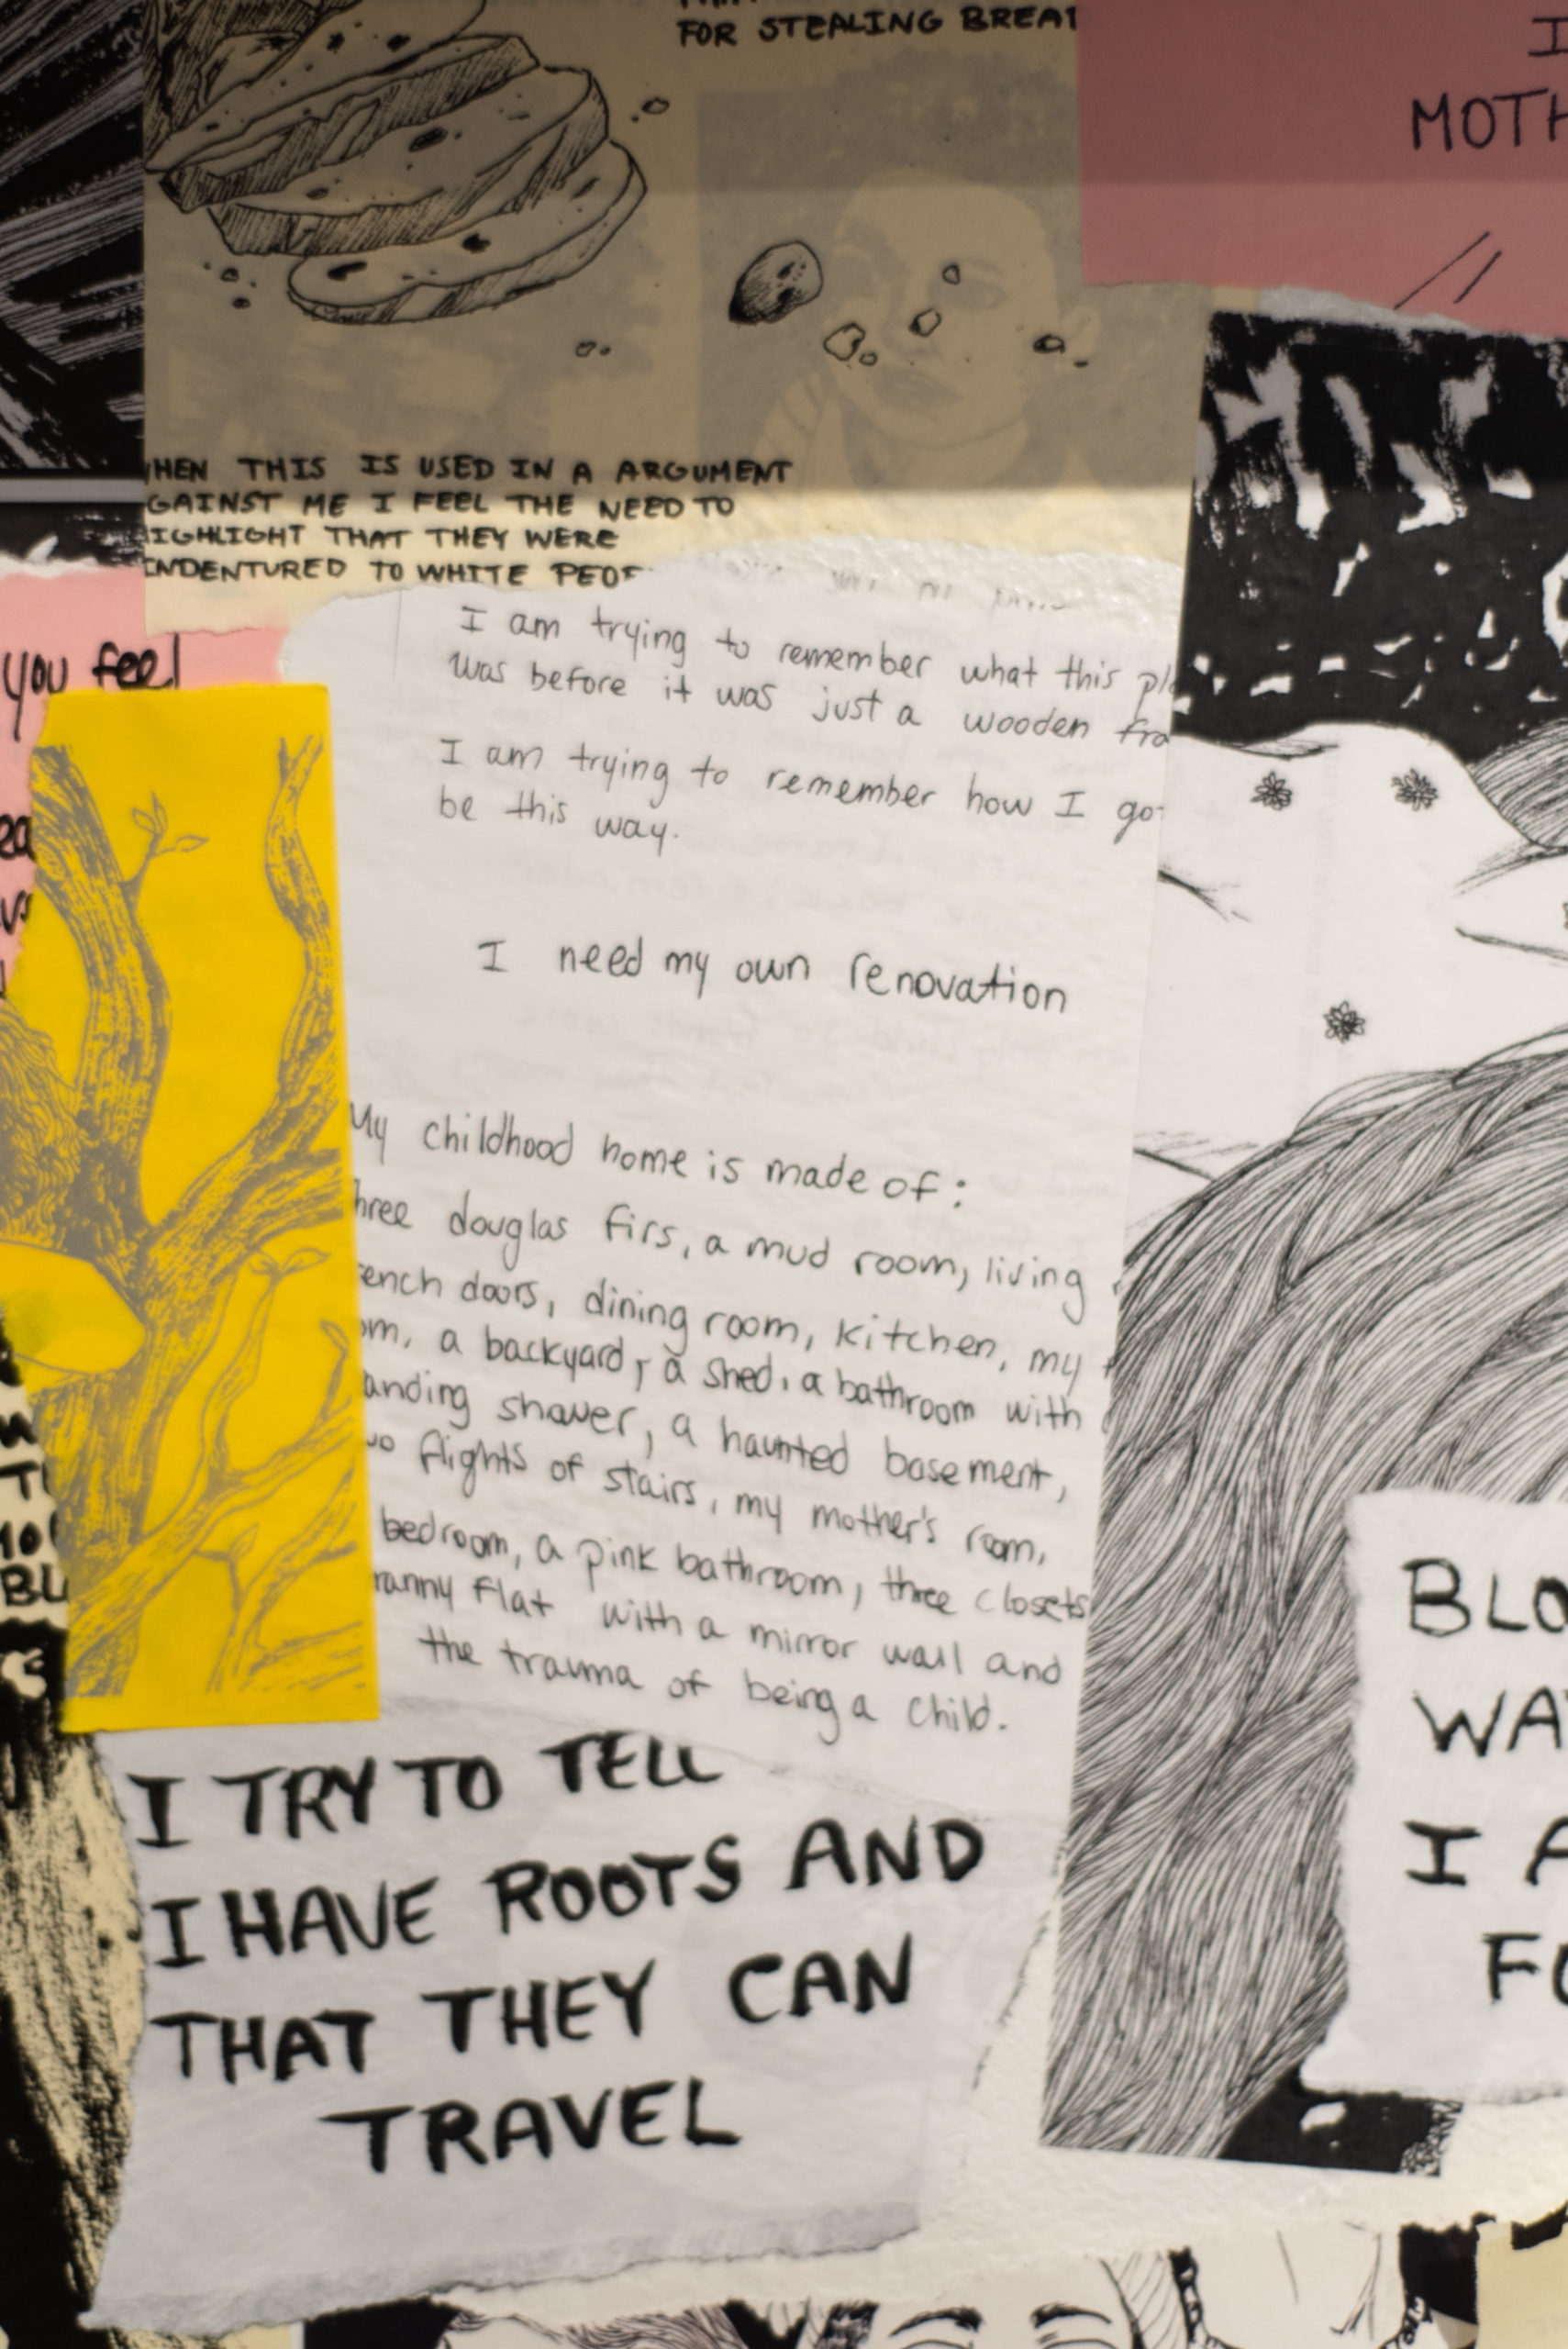 FOR STEALING BREA
I
MOTH
HEN THIS IS USED IN A ARGUMENT
GAINST ME I FEEL THE NEED TO
IGHLIGHT THAT THEY WERE
INDENTURED TO WHITE PEOP
you feel
I am trying to remember what this pla
was before it was just a wooden fra
I am trying to remember how I got
be this way.
I need my own renovation
My childhood home is made of:
hree douglas firs, a mud room, living
ench doors, dining room, kitchen, my
om, a backyard, a shed, a bathroom with
anding shower, a haunted basement,
wo flights of stairs, my mother's room,
bedroom, a pink bathroom, three closets
ranny flat with a mirror wall and
the trauma of being a child.
I TRY TO TELL
I HAVE ROOTS AND
THAT THEY CAN
TRAVEL
BLO
WA
I A
FO